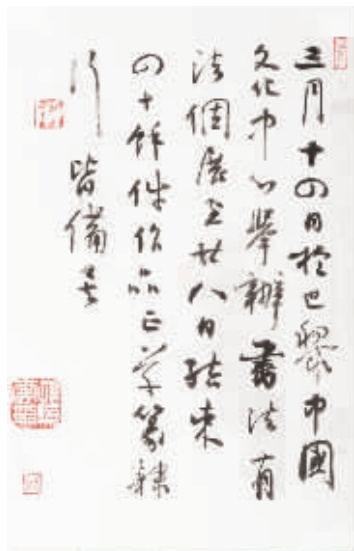 三月十四日於巴黎中國
文化中心舉辦書法首
法個展至廿八日結束
四十餘件作品正草篆隸
行皆備矣